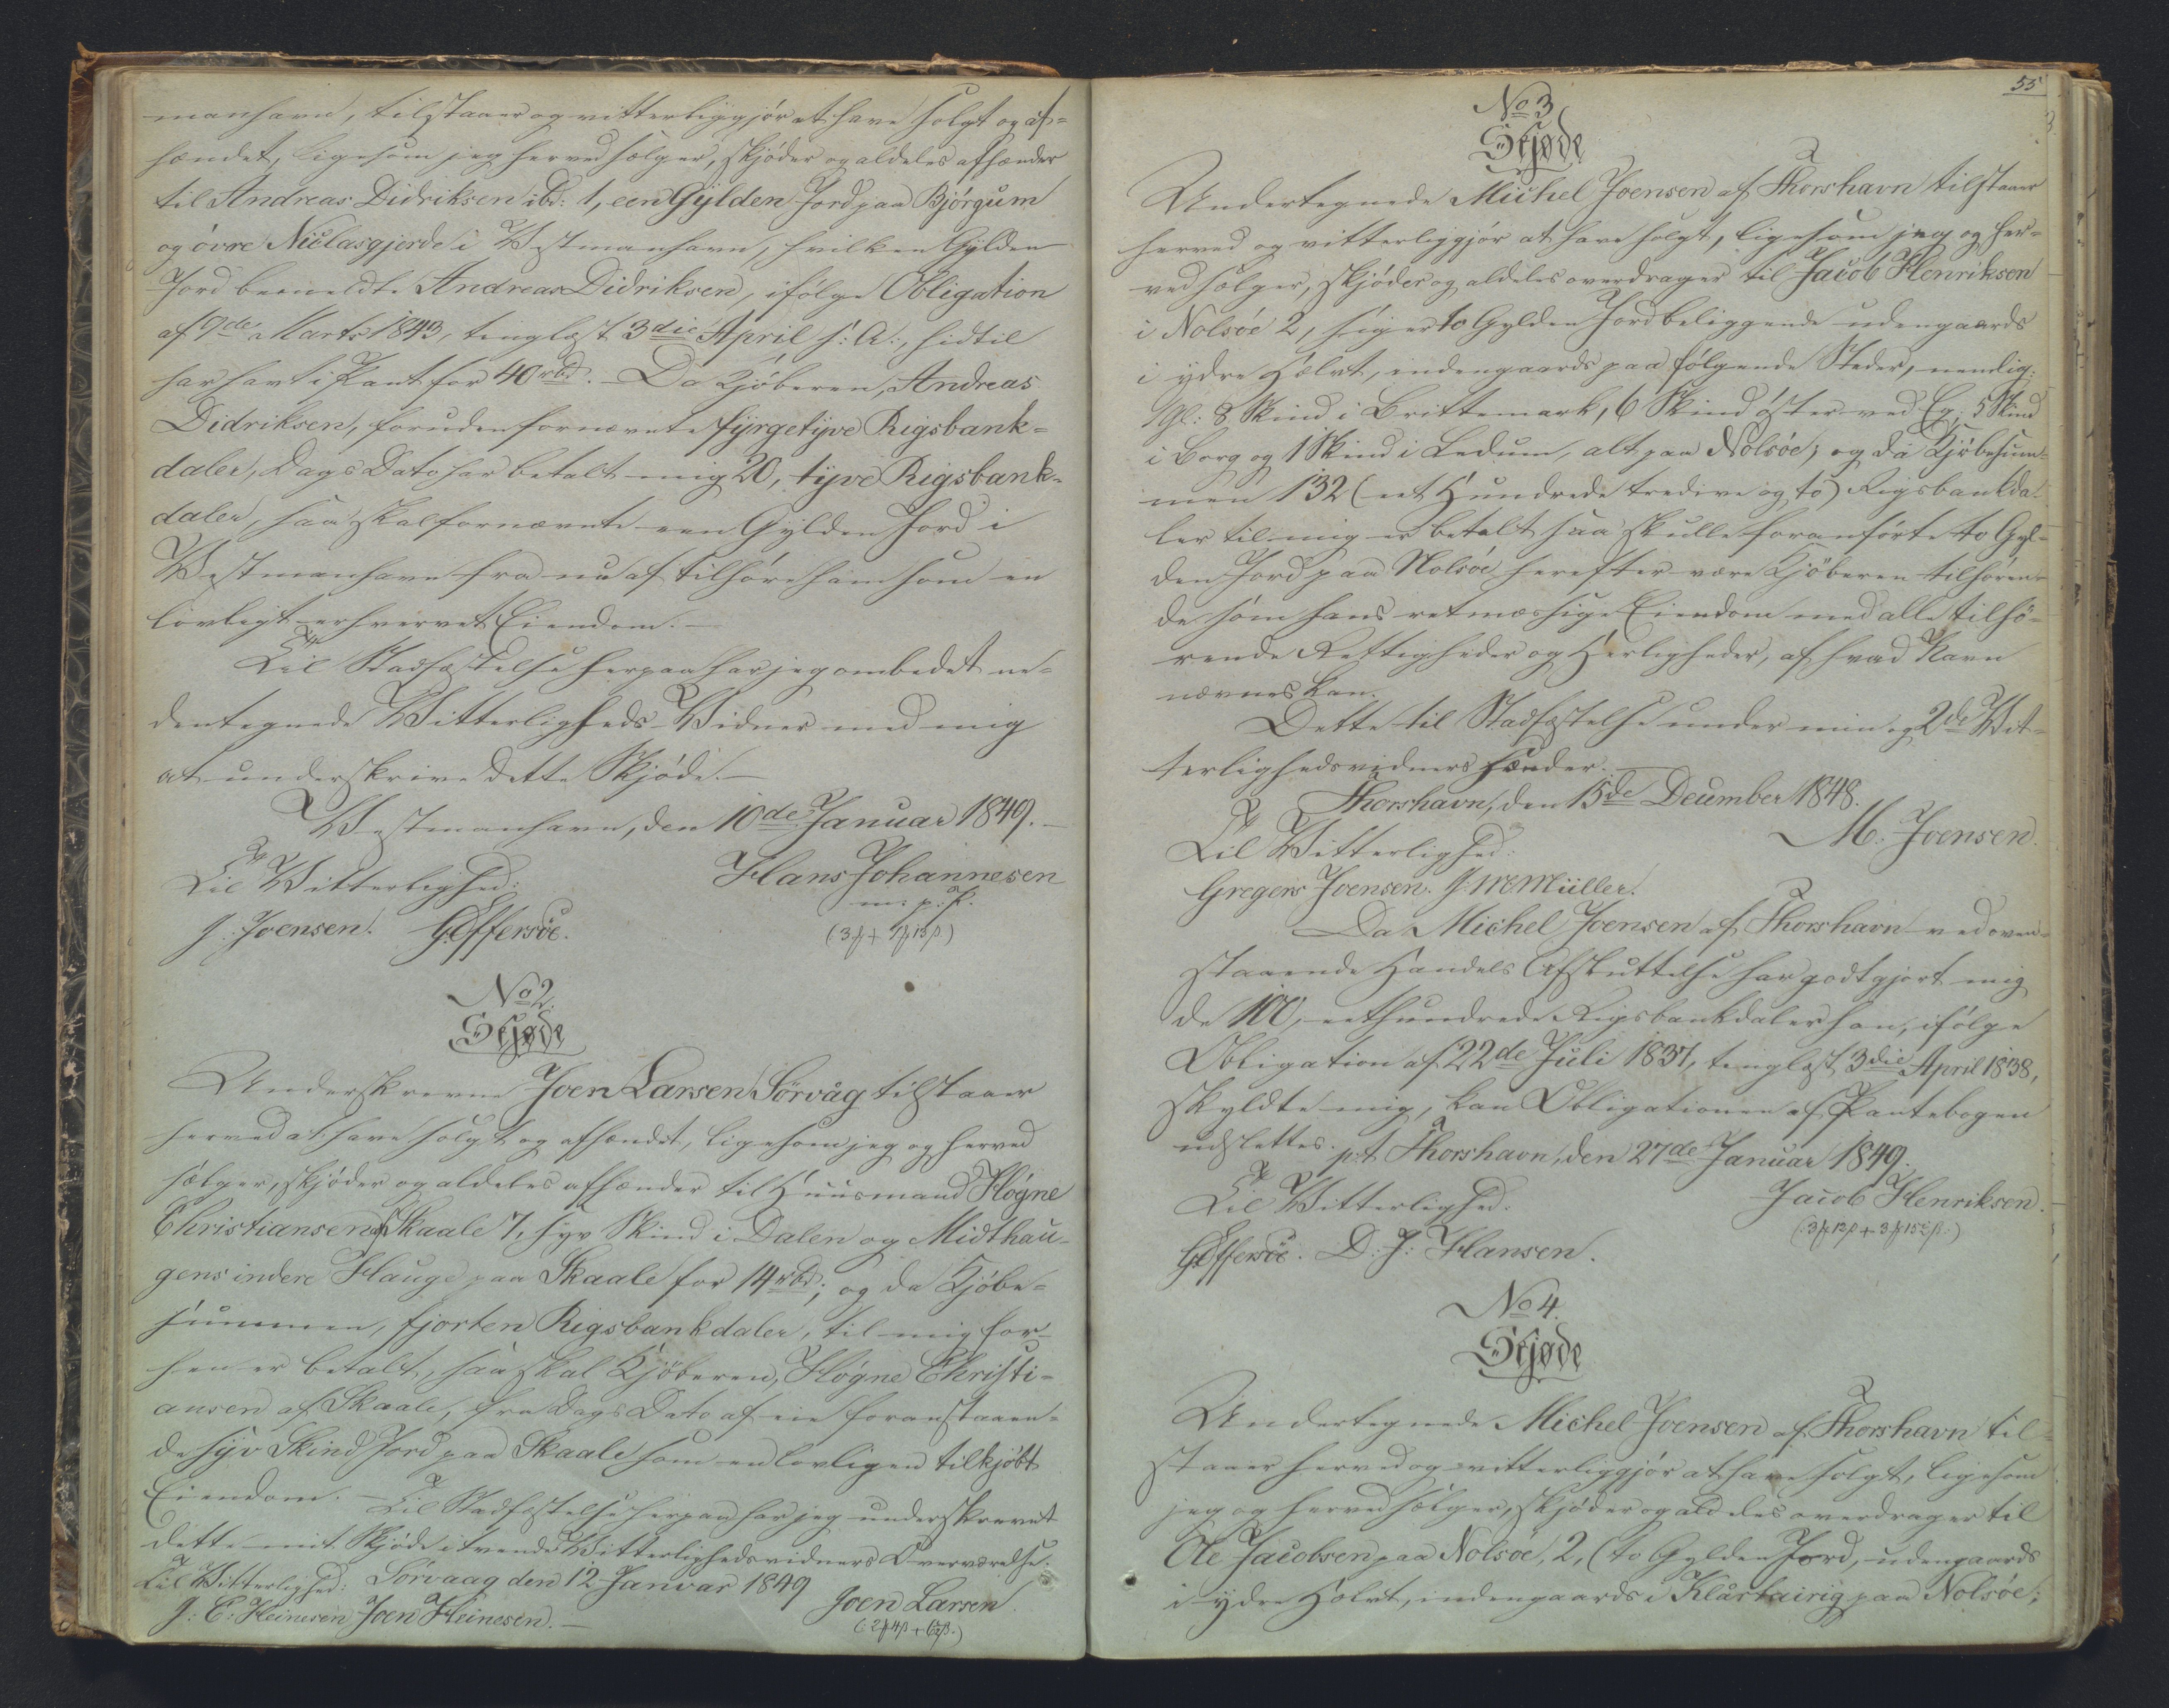 manhavn, tilstaaer og vitterliggjør at have solgt og af-
hændet, ligesom jeg herved sælger, skjøder og aldeles afhænder
til Andreas Didriksen ibd: 1, een Gylden Jord paa Bjórgum
og óvre Niclasgjerde i Vestmanhavn, hvilken Gylden
Jord bemeldte Andreas Didriksen, ifólge Obligation
af 9de Marts 1843, tinglæst 3die April s: A:, hidtil
har havt i Pant for 40 rbd. Da Kjóberen, Andreas
Didriksen, foruden fornævnte fyrgetyve Rigsbank-
daler, Dags Dato har betalt mig 20, tyve Rigsbank-
daler, saa skal fornævnte een Gylden Jord i
Vestmanhavn fra nu af tilhóre ham som en
lovligt erhvervet Eiendom.-
Til Stadfæstelse herpaa har jeg ombedet ne-
dentegnede Vitterligheds-Vidner med mig
at underskrive dette Skjóde.-
Vestmanhavn, den 10de Januar 1849.-
Til Vitterlighed: Hans Johannesen
m. p. P.
J. Joensen. G Effersóe.
No 2.
Skjøde
Underskrevne Joen Larsen Sórvág tilstaaer
herved at have solgt og afhændet, ligesom jeg og herved
sælger, skjóder og aldeles afhænder til Huusmand Hógne
Christiansen af Skaale 7, syv Skind i Dalen og Midthau-
gens indere Hauge paa Skaale for 14 rbd; og da Kjóbe-
summen, fjorten Rigsbankdaler, til mig for-
hen er betalt, saa skal Kjóberen, Hógne Christi-
ansen af Skaale, fra Dags Dato af eie foranstaaen-
de syv Skind Jord paa Skaale som en lovligen tilkjóbt
Eiendom. - Til Stadfæstelse herpaa har jeg underskrevet
dette mit Skjóde i tvende Vitterlighedsvidners Overværelse.
Til Vitterlighed: Sórvaag den 12 Januar 1849
Joen Larsen.
J: C: Heinesen Joen Heinesen.-
55
No 3
Skjøde
Undertegnede Michel Joensen af Thorshavn tilstaaer
herved og vitterliggjór at have solgt, ligesom jeg og her-
ved sælger, skjóder og aldeles overdrager til Jacob Henriksen
i Nolsóe 2, siger to Gylden Jord beliggende udengaards
i ydre Hælvt, indengaards paa fólgende Steder, nemlig:
1 Gl: 8 Skind i Brittemark, 6 Skind óster ved Eg, 5 Skind
i Borg og 1 Skind i Ledum, alt paa Nolsóe; og da Kjóbesum-
men 132 (eet Hundrede tredive og to) Rigsbankda-
ler til mig er betalt saa skulle foranfórte to Gyl-
den Jord paa Nolsóe herefter være Kjóberen tilhóren-
de som hans retmæssige Eiendom med alle tilhó-
rende Rettigheder og Herligheder, af hvad Navn
nævnes kan.
Dette til Stadfæstelse under min og 2de Vit-
terlighedsvidners Hænder.-
Thorshavn, den 15de December 1848.
Til Vitterlighed: M: Joensen.
Gregers Joensen. J. M Müller.
Da Michel Joensen af Thorshavn ved oven-
staaende Handels Afsluttelse har godtgjort mig
de 100, eethundrede Rigsbankdaler han, ifólge
Obligation af 22de Juli 1837, tinglæst 3die April 1838,
skyldte mig, kan Obligationen af Pantebogen
udslettes. p:t Thorshavn, den 27de Januar 1849.
Til Vitterlighed: Jacob Henriksen.
G Effersóe. D: J: Hansen.
No 4.
Skjøde
Undertegnede Michel Joensen af Thorshavn til-
staaer herved og vitterliggjór at have solgt, ligesom
jeg og herved sælger, skjóder og aldeles overdrager til
Ole Jacobsen paa Nolsóe, 2, (to Gylden Jord, udengaards
i ydre Hælvt, indengaards i paa Nolsóe;